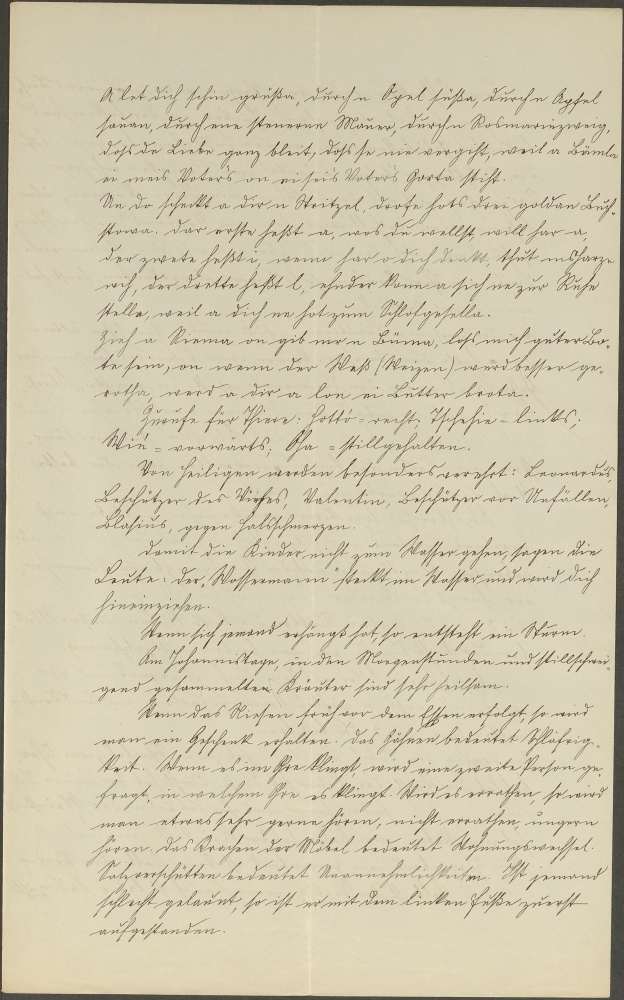 A let dich schin grüßa, durch n Ogel süßa, durch n Apfel
sauan, durch ene steneren Mauer, durch n Rosmariezweig,
doß du Liebe ganz bleit, doß se nie vergiht, weil a Bämla
ei meis Voters on ei seis Voters Gorta stiht.
Un do scheckt a dir n Stritzel, drofe hots drei goldan Buch-
stowa. Dar erste heßt a, wos du wellst, will har a,
der zwete heßt i, wenn har o dich denkt, thut ins Harze
wih, der drette heßt l, ehnder konn a sich ne zur Ruhe
stella, weil a dich ne hot zum Schlofgesella.
Zieh a Riema on gib mer n Büma, loß mich guter Bo-
te sein, on wenn der Weß (Weizen) werd besser ge-
rotha, werd a dir a lon ei Butter brota.
Zurufe für Thiere: Hotto = recht; Tschehie = links;
Wié = vorwärts; Oha = stillgehalten.
Von Heiligen werden besonders verehrt: Leonardus,
Beschützer des Viehes, Valentin, Beschützer vor Unfällen,
Blasius, gegen Halsschmerzen.
Damit die Kinder nicht zum Wasser gehen, sagen die
Leute: Der "Wossermann" steckt im Wasser und wird dich
hineinziehen.
Wenn sich jemand erhängt hat, so entsteht ein Sturm.
Am Johannistage, in den Morgenstunden und stillschwei-
gend gesammelten Kräuter sind sehr heilsam.
Wenn das Niesen früh vor dem Essen erfolgt, so wird
man ein Geschenk erhalten. Das Gähnen bedeutet Schläfrig-
keit. Wenn es im Ohre klingt, wird eine zweite Person ge-
fragt, in welchem Ohre es klingt. Wird es errathen, so wird
man etwas sehr gerne hören, nicht errathen, ungern
hören. Das Krachen der Möbel bedeutet Wohnungswechsel.
Salzverschütten bedeutet Unannehmlichkeiten. Ist jemand
schlecht gelaunt, so ist er mit dem linken Fuße zuerst
aufgestanden.